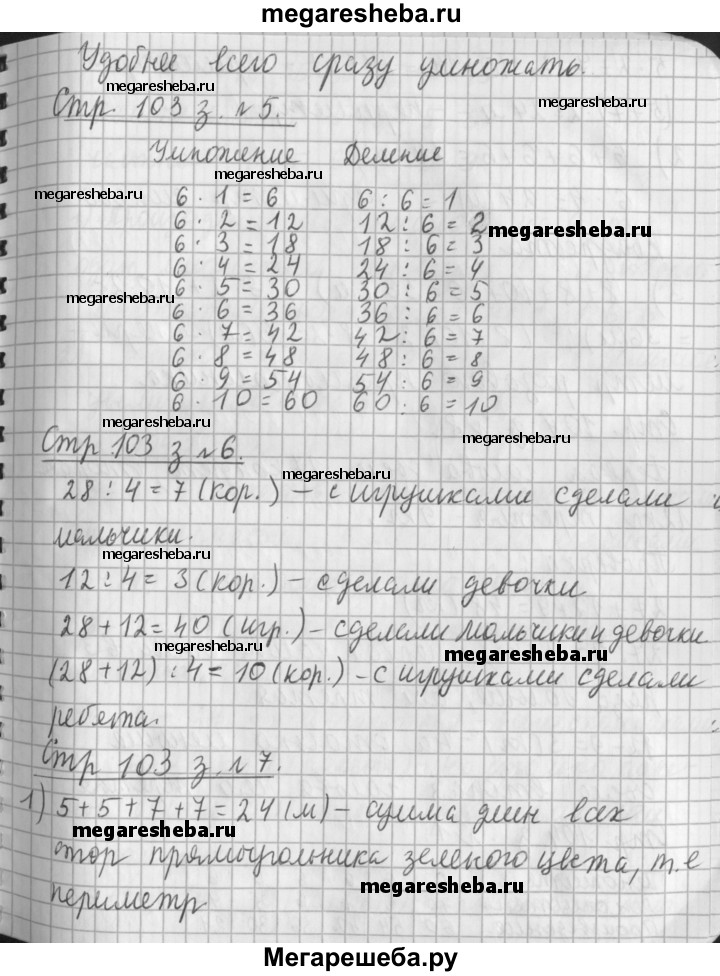 megaresheba.ru
Удобнее всего сразу умножать.
megaresheba.ru
megaresheba.ru
Стр. 103 з. №5.
Умножение Деление
megaresheba.ru
megaresheba.ru
6 · 1 = 6 6 : 6 = 1
6 · 2 = 12 12 : 6 = 2
megaresheba.ru
6 · 3 = 18 18 : 6 = 3
6 · 4 = 24 24 : 6 = 4
6 · 5 = 30 30 : 6 = 5
megaresheba.ru
6 · 6 = 36 36 : 6 = 6
6 · 7 = 42 42 : 6 = 7
6 · 8 = 48 48 : 6 = 8
6 · 9 = 54 54 : 6 = 9
6 · 10 = 60 60 : 6 = 10
megaresheba.ru
megaresheba.ru
Стр 103 з №6.
megaresheba.ru
28 : 4 = 7 (кор.) – с игрушками сделали
мальчики.
megaresheba.ru
12 : 4 = 3 (кор.) – сделали девочки
28 + 12 = 40 (игр.) – сделали мальчики и девочки
megaresheba.ru
megaresheba.ru
(28 + 12) : 4 = 10 (кор.) – с игрушками сделали
ребята.
megaresheba.ru
Стр 103 з. №7.
1) 5 + 5 + 7 + 7 = 24 (м) – сумма длин всех
megaresheba.ru
стор прямоугольника зеленого цвета, т.е
megaresheba.ru
периметр
Мегарешеба.ру